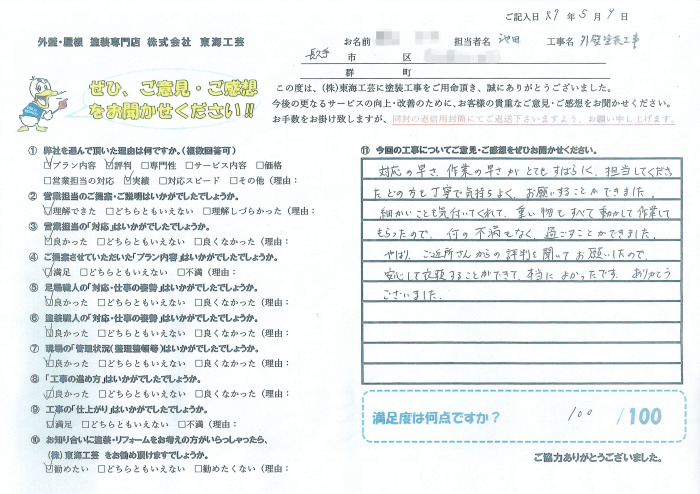 ご記入日 R7 年 5 月 9 日
外壁・屋根 塗装専門店 株式会社 東海工芸
お名前 担当者名 池田 工事名 外壁塗装工事
長久手 市 区
郡 町
ぜひ、ご意見・ご感想
をお聞かせください!!
この度は、(株)東海工芸に塗装工事をご用命頂き、誠にありがとうございました。
今後の更なるサービスの向上・改善のために、お客様の貴重なご意見・ご感想をお聞かせください。
お手数をお掛け致しますが、同封の返信用封筒にてご返送下さいますよう、お願い申し上げます。
① 弊社を選んで頂いた理由は何ですか。(複数回答可)
☑プラン内容 ☑評判 □専門性 □サービス内容 □価格
□営業担当の対応 ☑実績 □対応スピード □その他(理由:
② 営業担当のご提案・ご説明はいかがでしたでしょうか。
☑理解できた □どちらともいえない □理解しづらかった(理由:
③ 営業担当の「対応」はいかがでしたでしょうか。
☑良かった □どちらともいえない □良くなかった(理由:
④ ご提案させていただいた「プラン内容」はいかがでしたでしょうか。
☑満足 □どちらともいえない □不満(理由:
⑤ 足場職人の「対応・仕事の姿勢」はいかがでしたでしょうか。
☑良かった □どちらともいえない □良くなかった(理由:
⑥ 塗装職人の「対応・仕事の姿勢」はいかがでしたでしょうか。
☑良かった □どちらともいえない □良くなかった(理由:
⑦ 現場の「管理状況(整理整頓等)」はいかがでしたでしょうか。
☑良かった □どちらともいえない □良くなかった(理由:
⑧ 「工事の進め方」はいかがでしたでしょうか。
☑良かった □どちらともいえない □良くなかった(理由:
⑨ 工事の「仕上がり」はいかがでしたでしょうか。
☑満足 □どちらともいえない □不満(理由:
⑩ お知り合いに塗装・リフォームをお考えの方がいらっしゃったら、
(株)東海工芸 をお勧め頂けますでしょうか。
☑勧めたい □どちらともいえない □勧めたくない(理由:
⑪ 今回の工事についてご意見・ご感想をぜひお聞かせください。
対応の早さ、作業の早さがとてもすばらしく、担当してくださっ
たどの方も丁寧で気持ちよく、お願いすることができました。
細かいことも気付いてくれて、重い物もすべて動かして作業して
もらったので、何の不満もなく、過ごすことができました。
やはり、ご近所さんからの評判を聞いてお願いしたので、
安心してお任せすることができて、本当によかったです。ありがとう
ございました。
満足度は何点ですか? 100 /100
ご協力ありがとうございました。